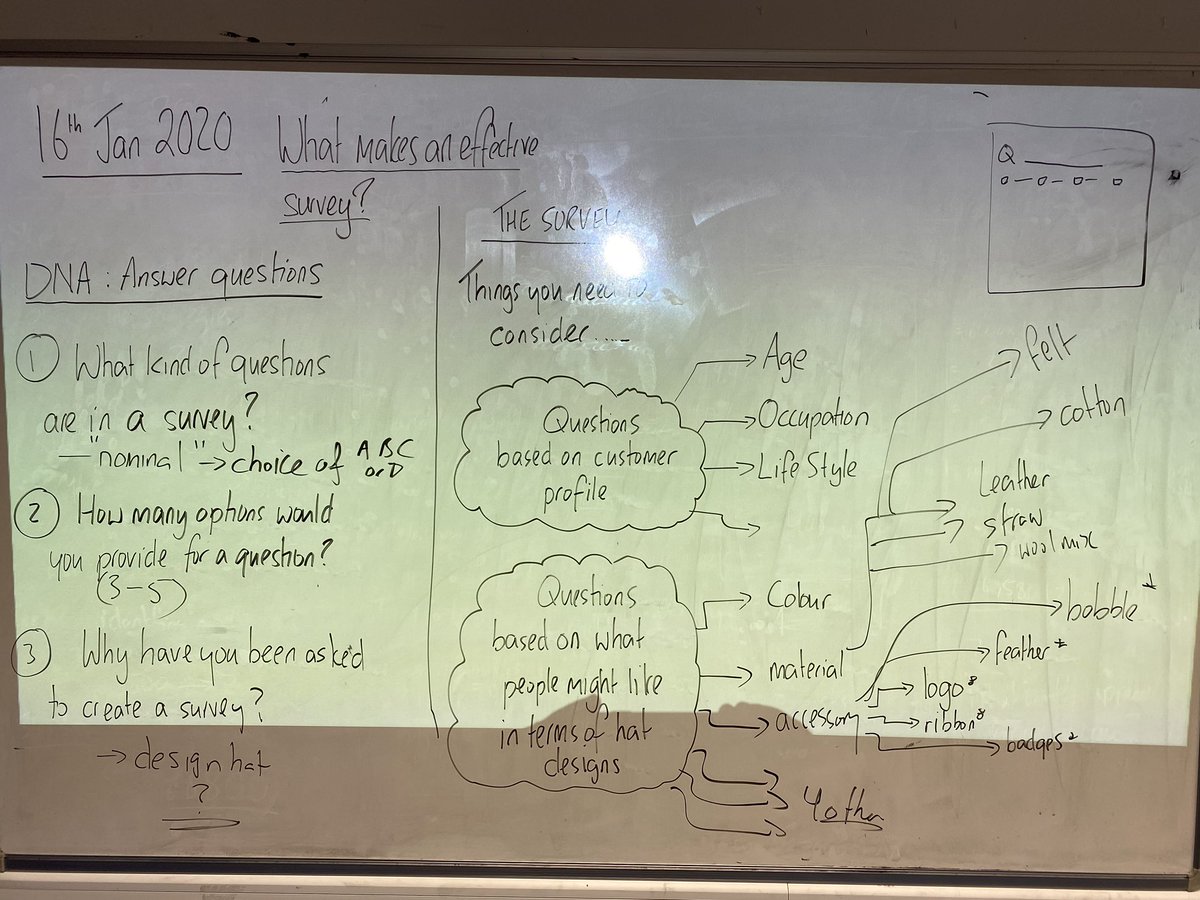 16th Jan 2020
What makes an effective
survey?
DNA: Answer questions
1 What kind of questions
are in a survey?
— "nominal" → choice of A B C
or D
2 How many options would
you provide for a question?
(3-5)
3 Why have you been asked
to create a survey?
→ design hat
?
THE SURVEY
Things you need to
consider.....
Questions
based on customer
profile
Age
Occupation
Life Style
Questions
based on what
people might like
in terms of hat
designs
Colour
material
accessory
4 other
felt
cotton
Leather
straw
wool mix
bobble
feather
logo
ribbon
badges
Q